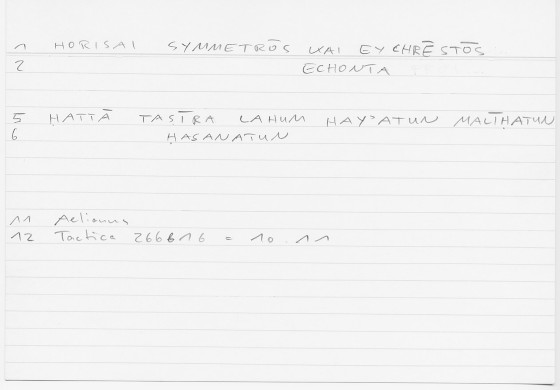 1 HORISAI SYMMETRŌS KAI EYCHRĒSTŌS
2 ECHONTA
5 ḤATTĀ TASĪRA LAHUM HAY᾽ATUN MALĪḤATUN
6 ḤASANATUN
11 Aelianus
12 Tactica 266b16 = 10.11